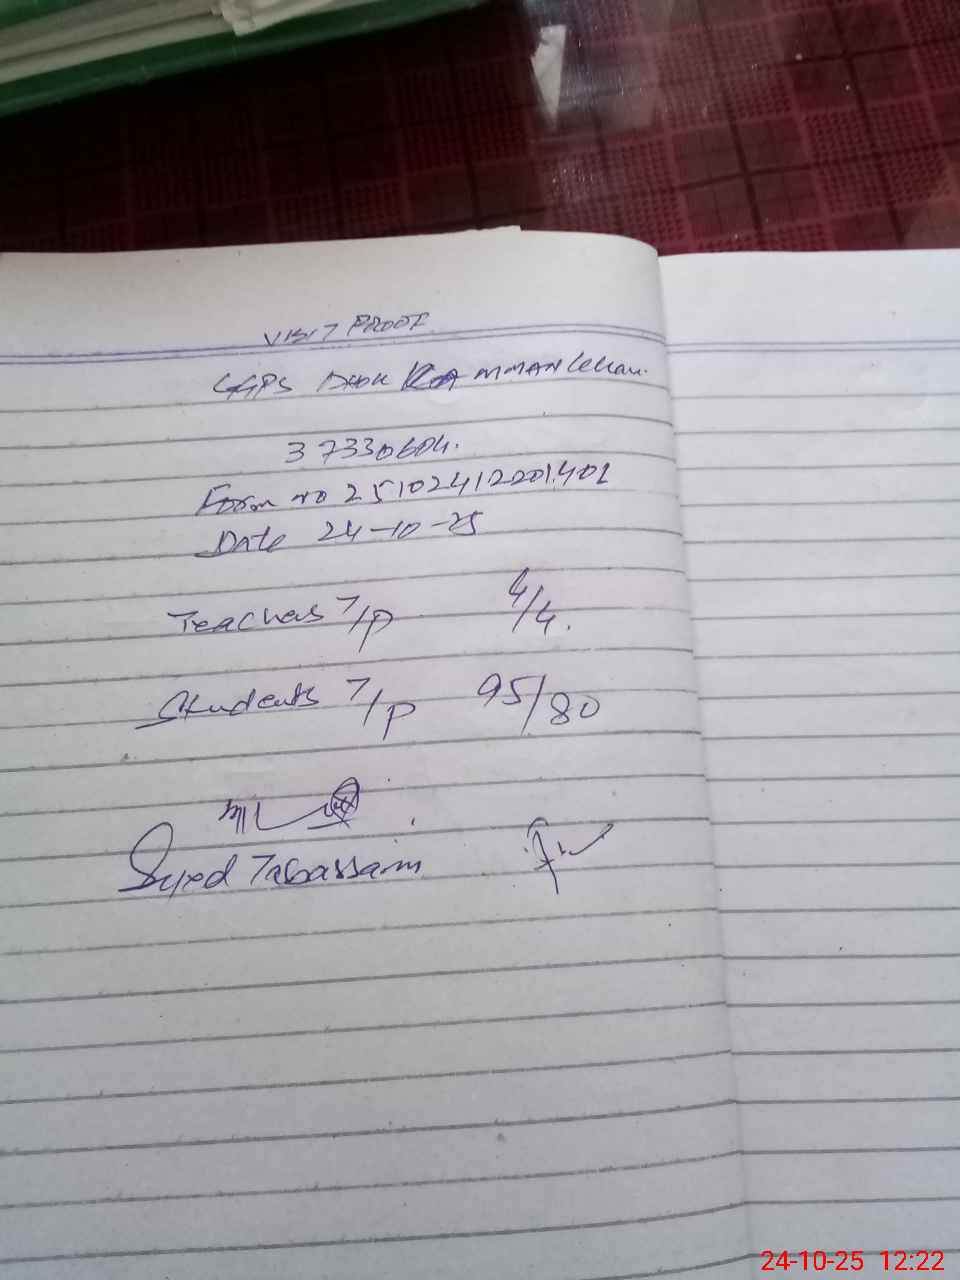 VISIT PROOF
GGPS DHOK
37330604.
Form no 25102412201401
Date 24-10-25
Teachers T/P 4/4.
Students T/P 95/80
Syed Tabassam
24-10-25 12:22